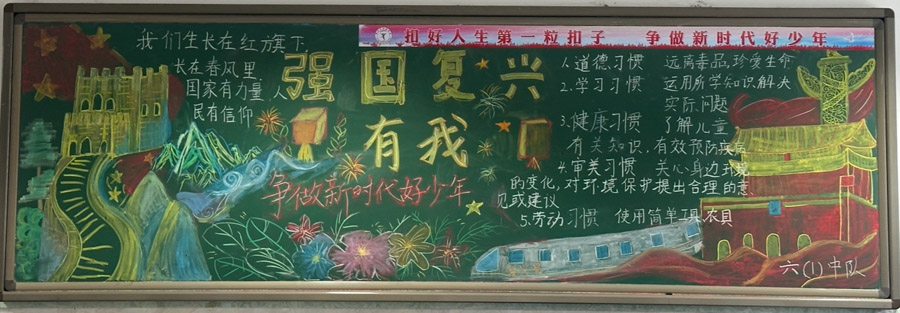 扣好人生第一粒扣子 争做新时代好少年
我们生长在红旗下
长在春风里
国家有力量 人
民有信仰
强国复兴
有我
争做新时代好少年
1.道德习惯 远离毒品,珍爱生命
2.学习习惯 运用所学知识解决
实际问题
3.健康习惯 了解儿童
有关知识,有效预防疾病
4.审美习惯 关心身边环境
的变化,对环境保护提出合理的意
见或建议
5.劳动习惯 使用简单工具,农具
六(1)中队